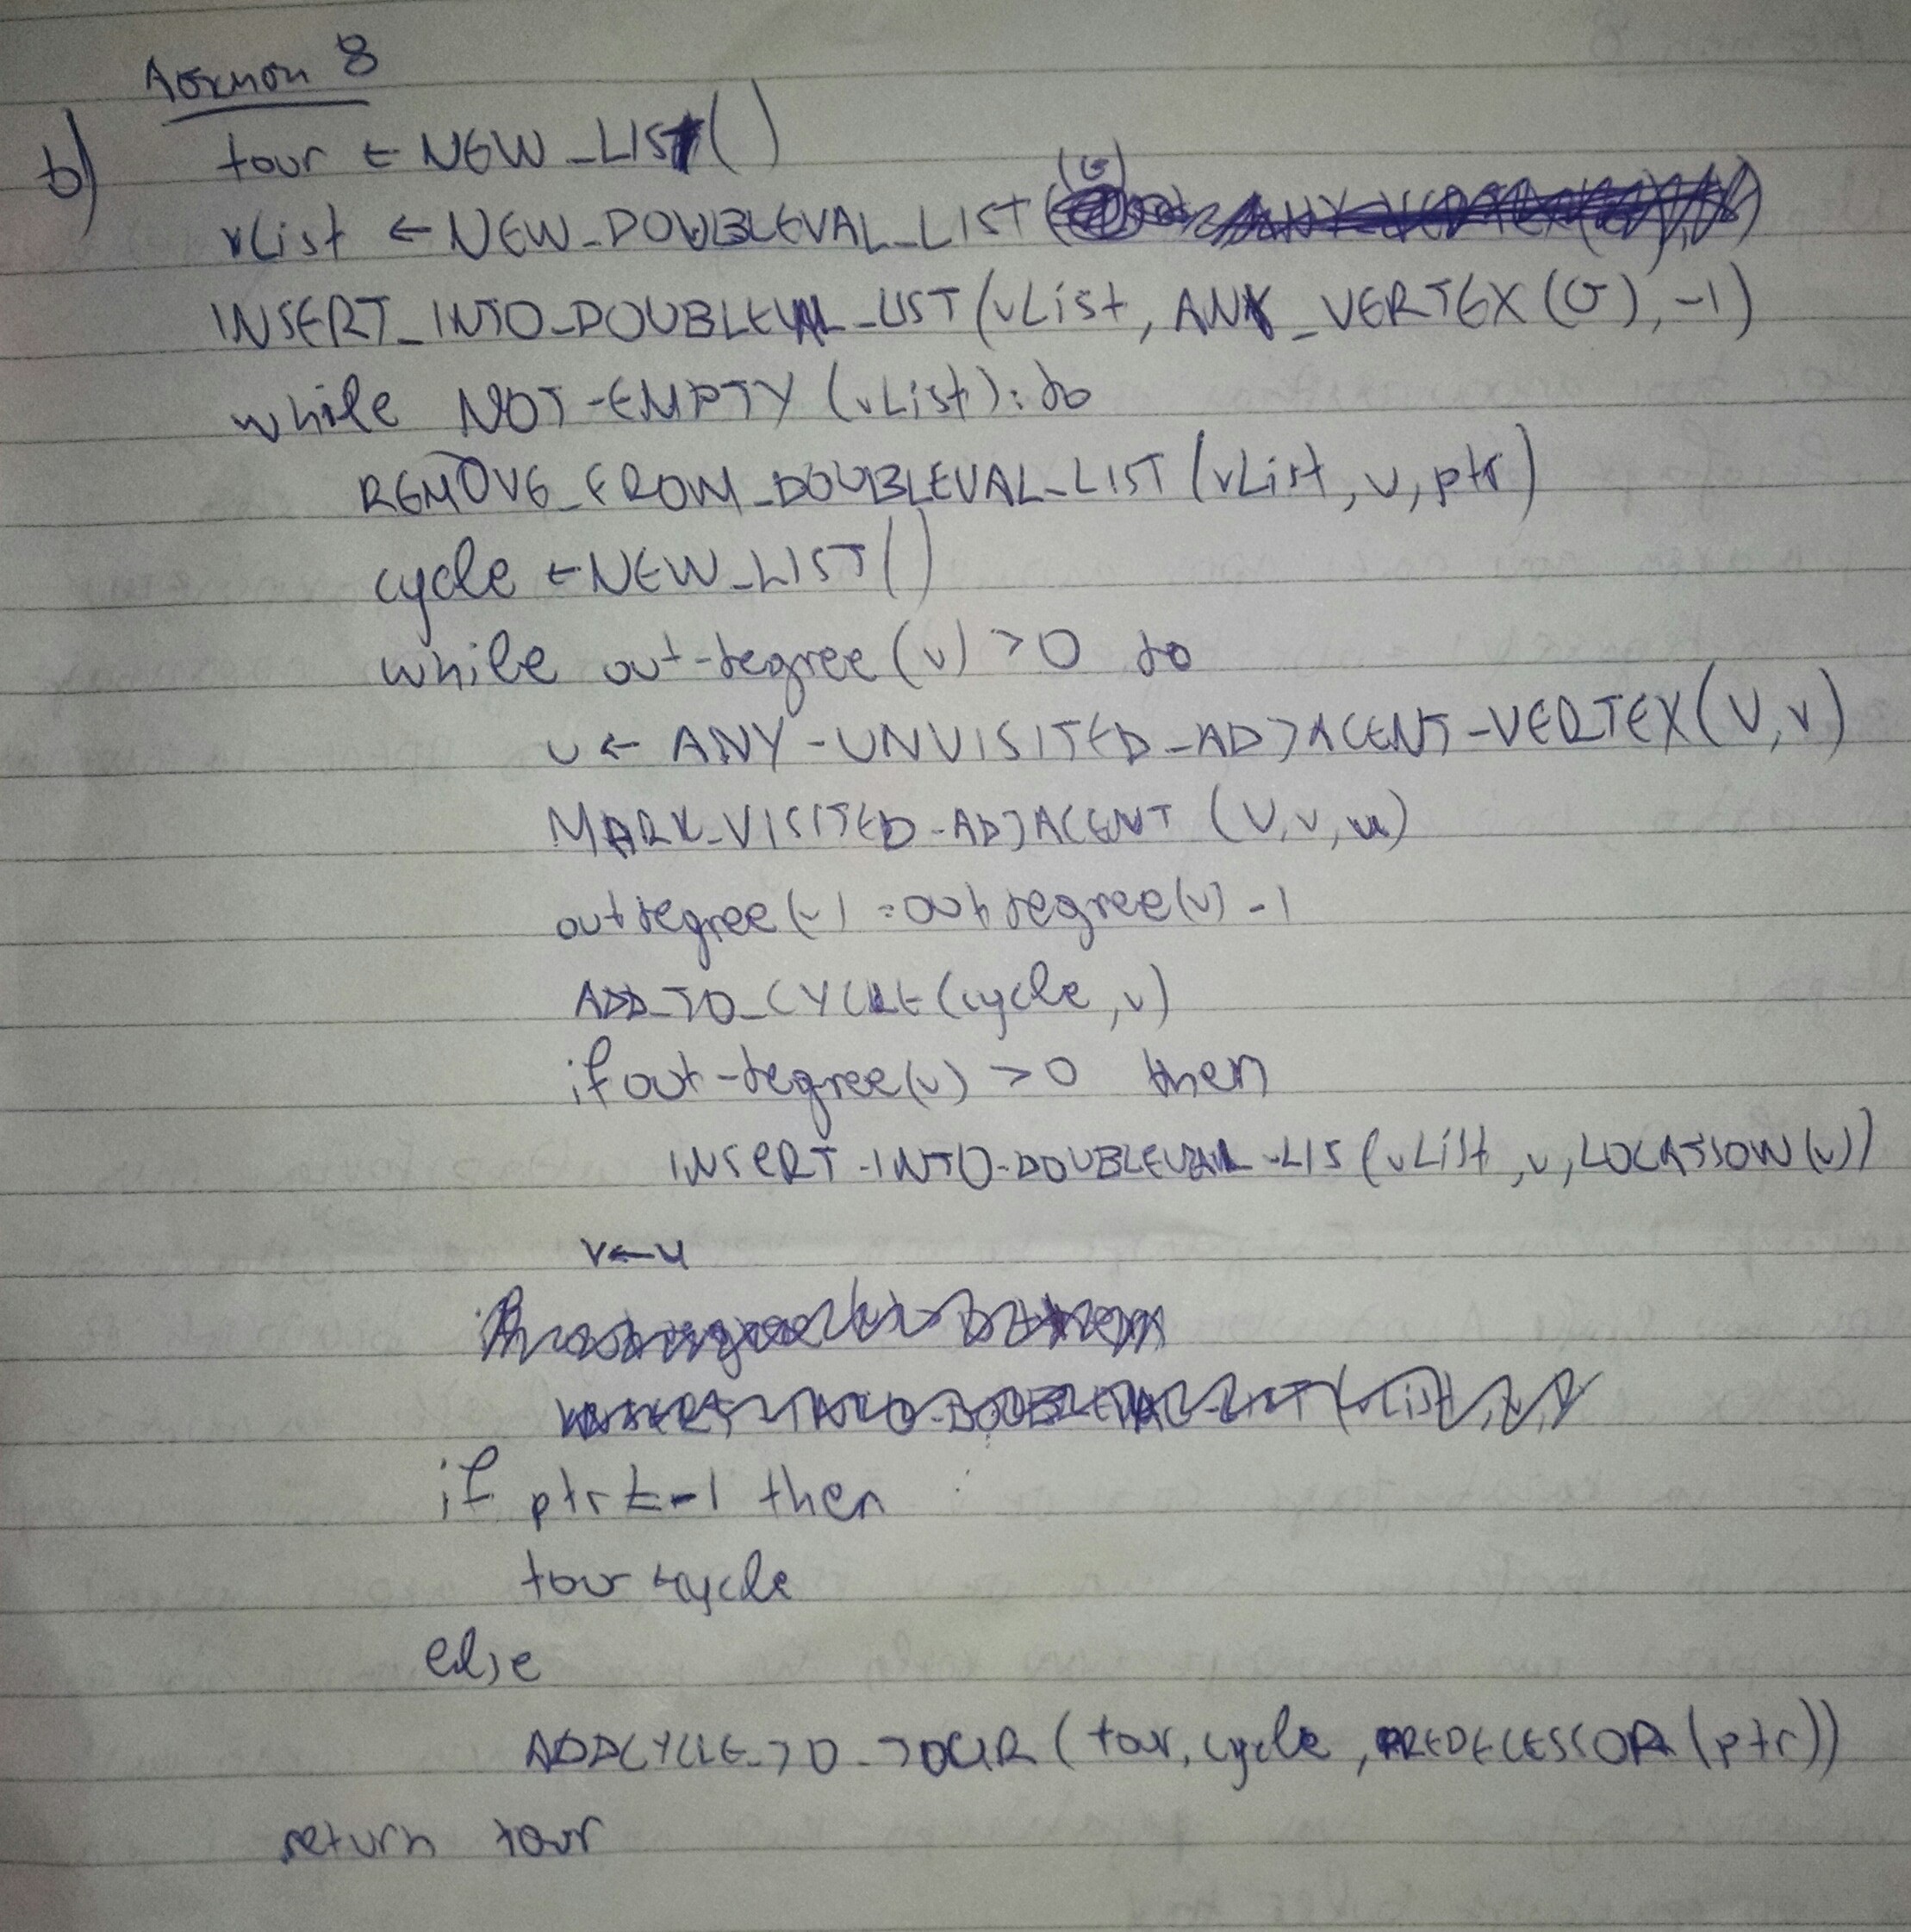 Άσκηση 8
b) tour ← NEW_LIST()
vList ← NEW_DOUBLEVAL_LIST (G)
INSERT_INTO_DOUBLEVAL_LIST (vList, ANY_VERTEX(G), -1)
while NOT-EMPTY (vList): do
REMOVE_FROM_DOUBLEVAL_LIST (vList, v, ptr)
cycle ← NEW_LIST()
while out-degree(v) > 0 do
u ← ANY-UNVISITED_ADJACENT-VERTEX(V, v)
MARK_VISITED-ADJACENT (V, v, u)
outdegree(v) = outdegree(v) - 1
ADD_TO_CYCLE(cycle, v)
if out-degree(v) > 0 then
INSERT-INTO-DOUBLEVAL-LIS(vList, v, LOCATION(v))
v ← u
if ptr = -1 then
tour ← cycle
else
ADDCYCLE_TO_TOUR (tour, cycle, PREDECESSOR(ptr))
return tour